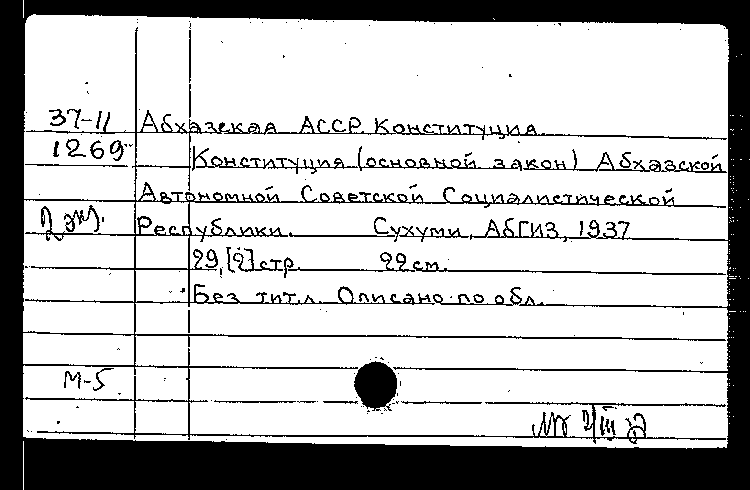 37-11 Абхазская АССР. Конституция.
1269 Конституция (основной закон) Абхазской
Автономной Советской Социалистической
2 экз. Республики. Сухуми, АБГИЗ, 1937
29,[2] стр. 22 см.
Без тит.л. Описано по обл.
М-5